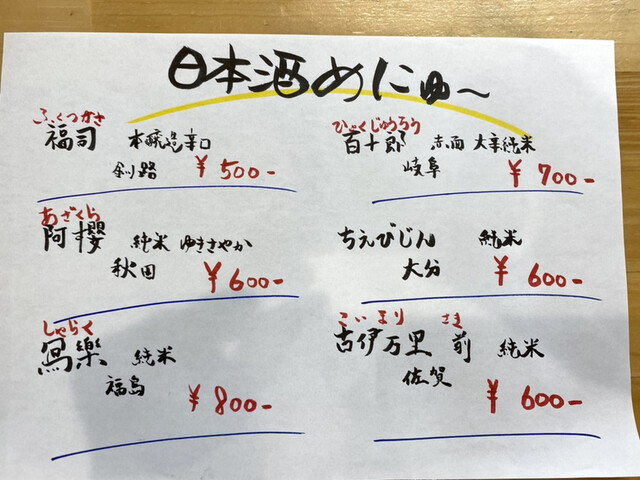 日本酒めにゅ～
ふくつかさ
福司 本醸造辛口
釧路 ¥500-
あざくら
阿櫻 純米 ゆきささやか
秋田 ¥600-
しゃらく
寫樂 純米
福島 ¥800-
ひゃくじゅうろう
百十郎 赤面 大辛純米
岐阜 ¥700-
ちえびじん 純米
大分 ¥600-
こいまり さき
古伊万里 前 純米
佐賀 ¥600-